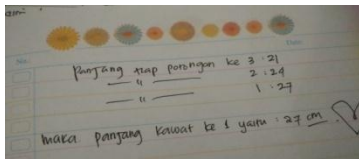 No.
Date:
Panjang tiap potongan ke 3 : 21
— " — 2 : 24
— " — 1 : 27
maka panjang kawat ke 1 yaitu : 27 cm